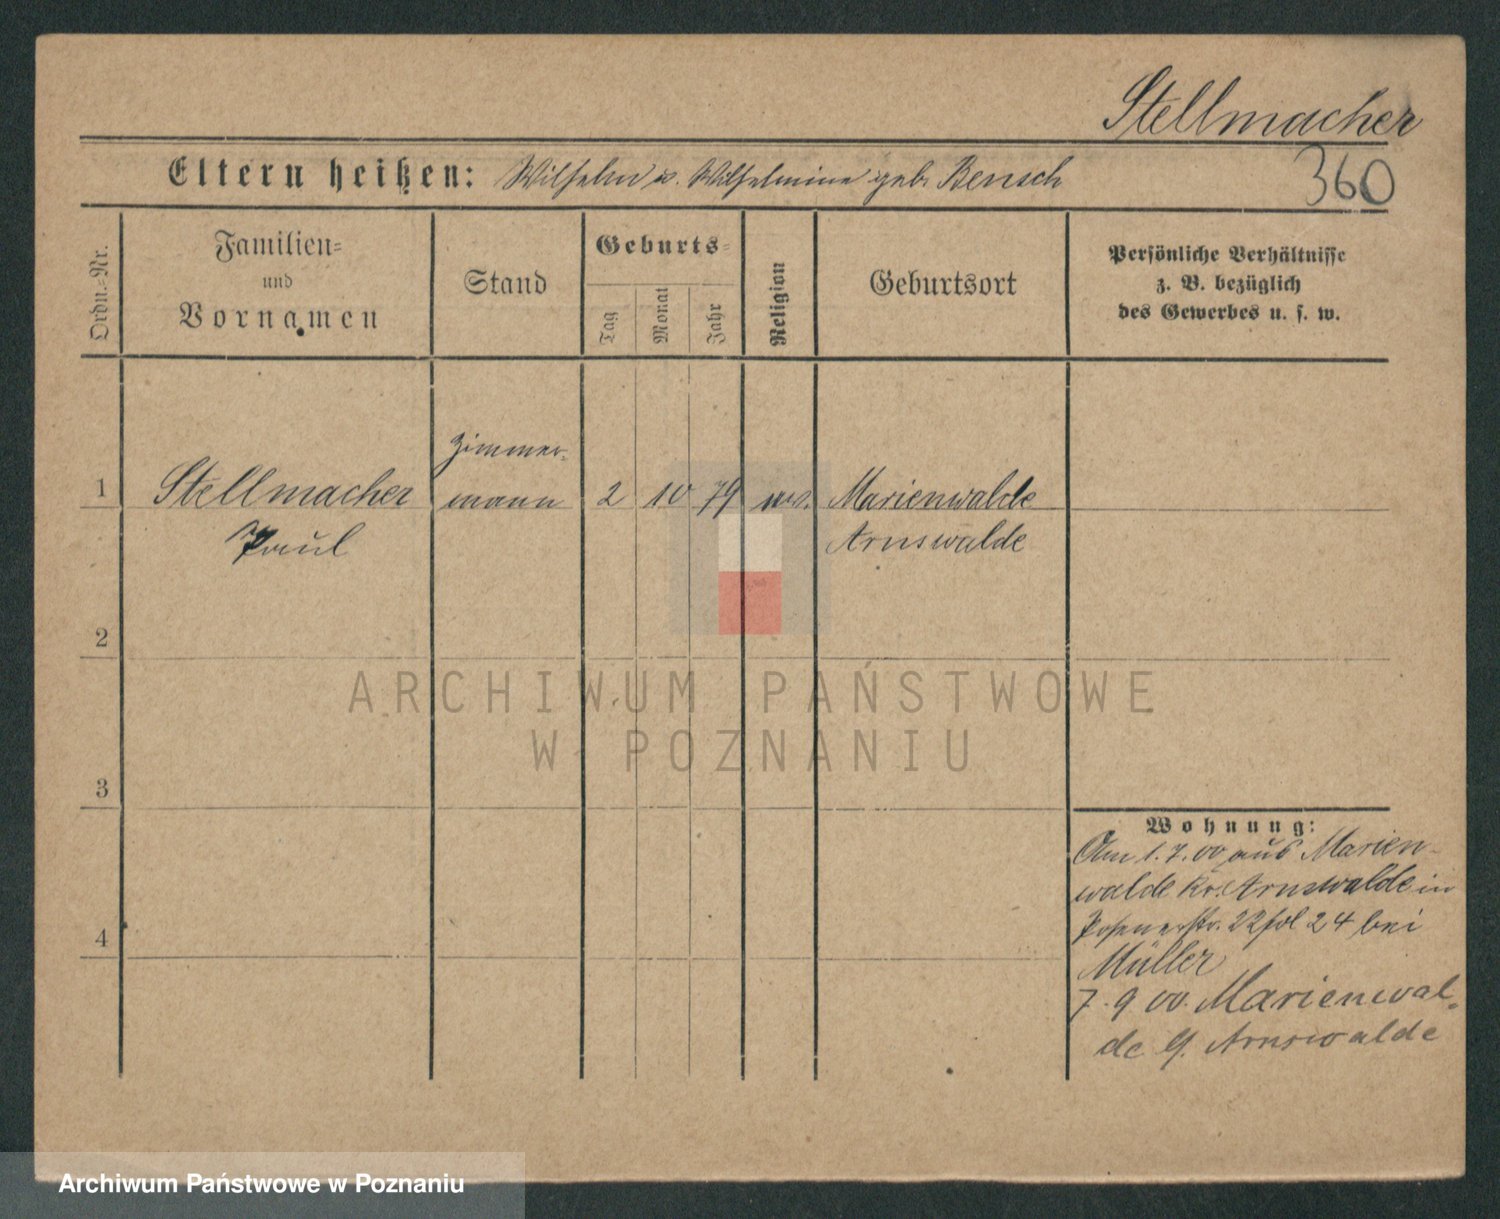 Stellmacher
Eltern heißen: Wilhelm u. Wilhelmine geb. Bensch
360
Ordn.-Nr.
Familien-
und
Vornamen
Stand
Geburts-
Tag
Monat
Jahr
Religion
Geburtsort
Persönliche Verhältnisse
z. B. bezüglich
des Gewerbes u. s. w.
Zimmer-
1 Stellmacher mann 2 10 79 Marienwalde
Paul Arnswalde
2
3
4
Wohnung:
Am 1.7.00 aus Marien-
walde Kr. Arnswalde in
Posenerstr. 22 24 bei
Müller
7. 9 00. Marienwal-
de Arnswalde
ARCHIWUM PAŃSTWOWE
W POZNANIU
Archiwum Państwowe w Poznaniu